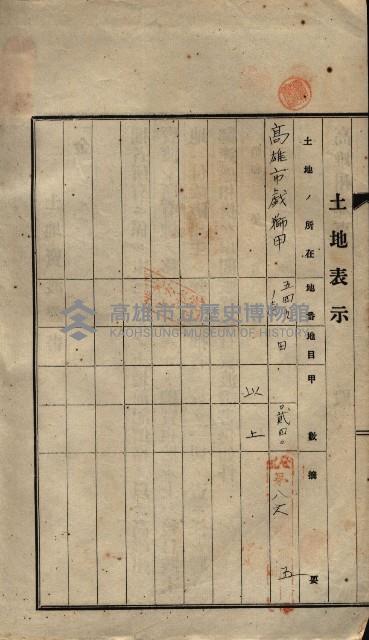 土地表示
土地ノ所在
地番
地目
甲數
摘要
高雄市戲獅甲
五四九
田
。貳四。
五
以上
高雄市立歷史博物館
KAOHSIUNG MUSEUM OF HISTORY